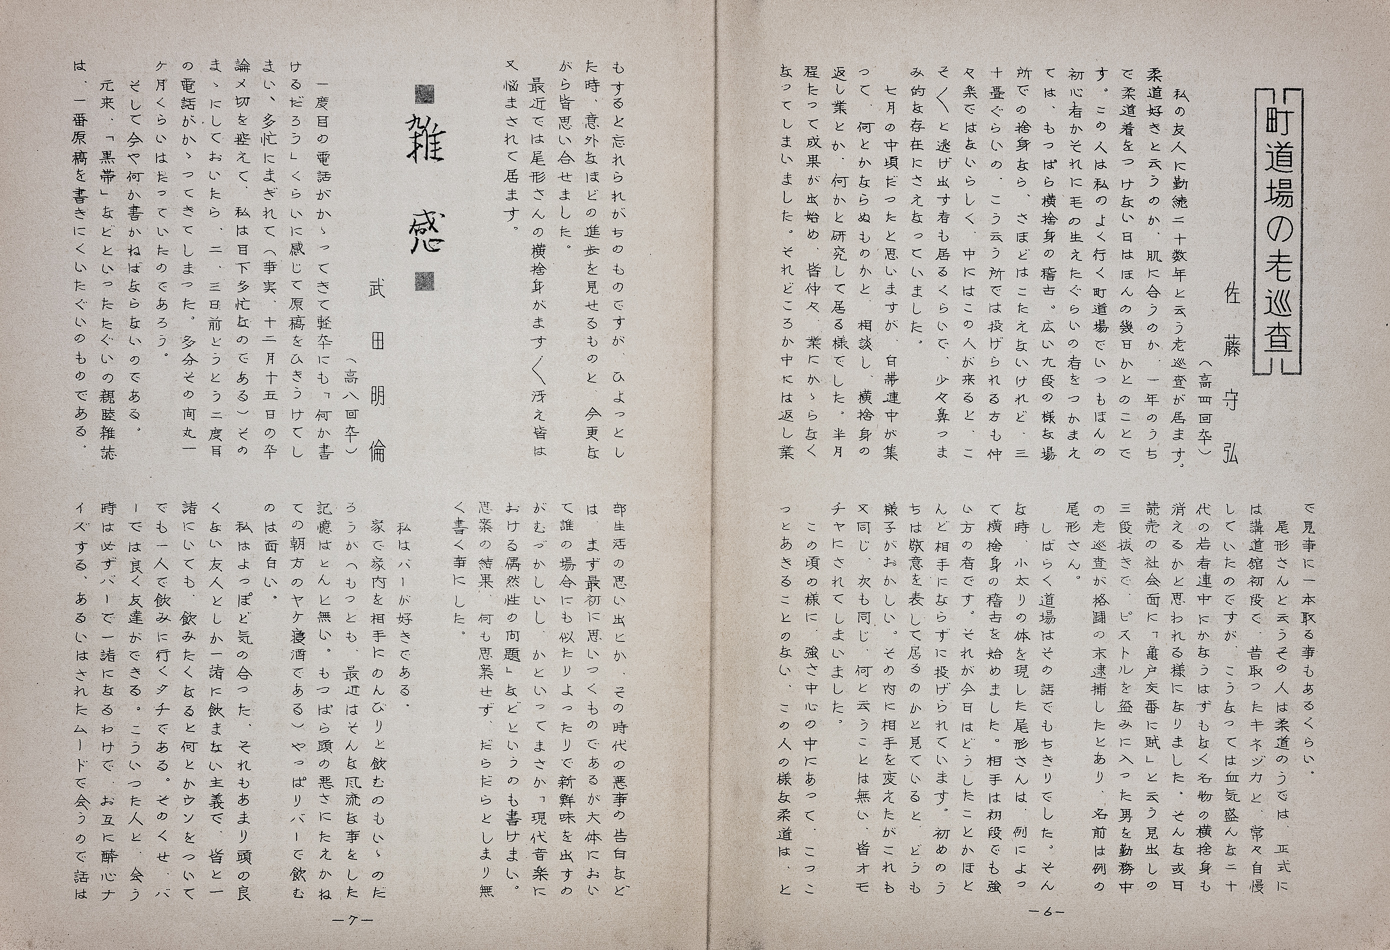 町道場の老巡査
佐藤守弘
（高四回卒）
私の友人に勤続二十数年と云う老巡査が居ます。
柔道好きと云うのか、肌に合うのか、一年のうち
で柔道着をつけない日はほんの幾日かとのことで
す。この人は私のよく行く町道場でいつもほんの
初心者かそれに毛の生えたぐらいの者をつかまえ
ては、もっぱら横捨身の稽古。広い九段の様な場
所での捨身なら、さほどはこたえないけれど、三
十畳ぐらいの、こう云う所では投げられる方も仲
々楽ではないらしく、中にはこの人が来ると、こ
そ〱と逃げ出す者も居るくらいで、少々鼻っま
み的な存在にさえなっていました。
七月の中頃だったと思いますが、白帯連中が集
って、何とかならぬものかと、相談し、横捨身の
返し業とか、何かと研究して居る様でした。半月
程たって成果が出始め、皆仲々、業にかゝらなく
なってしまいました。それどころか中には返し業
で見事に一本取る事もあるくらい。
尾形さんと云うその人は柔道のうでは、正式に
は講道館初段で、昔取ったキネヅカと、常々自慢
していたのですが、こうなっては血気盛んな二十
代の若者連中にかなうはずもなく名物の横捨身も
消えるかと思われる様になりました。そんな或日
読売の社会面に「亀戸交番に賊」と云う見出しの
三段抜きで、ピストルを盗みに入った男を勤務中
の老巡査が格闘の末逮捕したとあり、名前は例の
尾形さん。
しばらく道場はその話でもちきりでした。そん
な時、小太りの体を現した尾形さんは、例によっ
て横捨身の稽古を始めました。相手は初段でも強
い方の者です。それが今日はどうしたことかほと
んど相手にならずに投げられています。初めのう
ちは敬意を表して居るのかと見ていると、どうも
様子がおかしい。その内に相手を変えたがこれも
又同じ、次も同じ、何と云うことは無い、皆オモ
チャにされてしまいました。
この頃の様に、強さ中心の中にあって、こつこ
っとあきることのない、この人の様な柔道は、と
—6—
もすると忘れられがちのものですが、ひょっとし
た時、意外なほどの進歩を見せるものと、今更な
がら皆思い合せました。
最近では尾形さんの横捨身がます〱冴え皆は
又悩まされて居ます。
■雑感■
武田明倫
（高八回卒）
一度目の電話がかゝってきて軽卒にも「何か書
けるだろう」くらいに感じて原稿をひきうけてし
まい、多忙にまぎれて（事実、十二月十五日の卒
論〆切を控えて、私は目下多忙なのである）その
まゝにしておいたら、二、三日前とうとう二度目
の電話がかゝってきてしまった。多分その向丸一
ヶ月くらいはたっていたのであろう。
そして今や何か書かねばならないのである。
元来、「黒帯」などといったたぐいの親睦雑誌
は、一番原稿を書きにくいたぐいのものである。
部生活の思い出とか、その時代の悪事の告白など
は、まず最初に思いつくものであるが大体におい
て誰の場合にも似たりよったりで新鮮味を出すの
がむっかしいし、かといってまさか「現代音楽に
おける偶然性の向題」などというのも書けまい。
思案の結果、何も思案せず、だらだらとしまり無
く書く事にした。
私はバーが好きである。
家で家内を相手にのんびりと飲むのもいゝのだ
ろうが（もっとも、最近はそんな風流な事をした
記憶はとんと無い。もっぱら頭の悪さにたえかね
ての朝方のヤケ寝酒である）やっぱりバーで飲む
のは面白い。
私はよっぽど気の合った、それもあまり頭の良
くない友人としか一諸に飲まない主義で、皆と一
諸にいても、飲みたくなると何とかウソをついて
でも一人で飲みに行くタチである。そのくせ、バ
ーでは良く友達ができる。こういった人と、会う
時は必ずバーで一諸になるわけで、お互に酔心ナ
イズする、あるいはされたムードで会うので話は
—7—